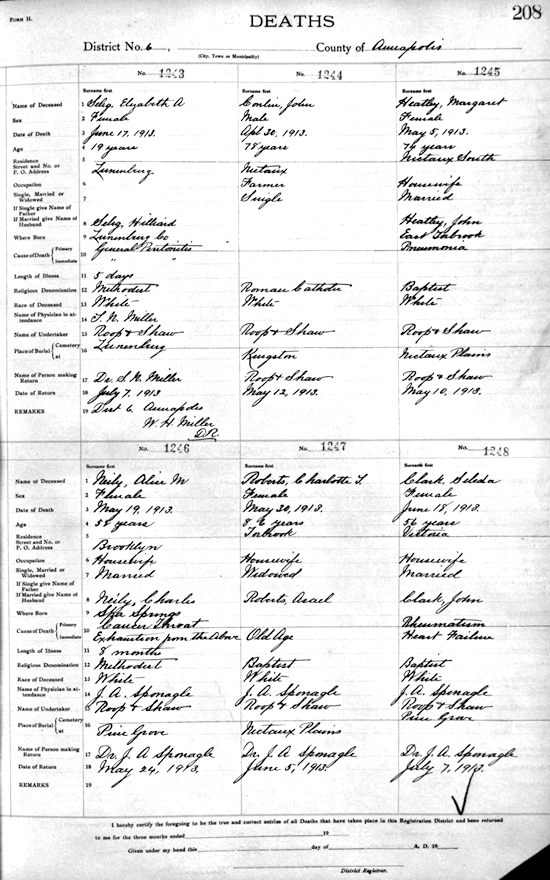 FORM H.
DEATHS
208
District No. 6, County of Annapolis
(City, Town or Municipality)
No. 1243 No. 1244 No. 1245
Surname first Surname first Surname first
Name of Deceased 1 Selig, Elizabeth A Conlin, John Heatley, Margaret
Sex 2 Female Male Female
Date of Death 3 June 17, 1913. Apl 30, 1913. May 5, 1913.
Age 4 19 years 78 years 74 years
Residence Street and No. or P. O. Address 5 Lunenburg Nictaux Nictaux South
Occupation 6 Farmer Housewife
Single, Married or Widowed 7 Single Married
If Single give Name of Father
If Married give Name of Husband 8 Selig, Hilliard Heatley, John
Where Born 9 Lunenburg Co East Torbrook
Cause of Death { Primary General Peritonites Pneumonia
Immediate 10 " "
Length of Illness 11 5 days
Religious Denomination 12 Methodist Roman Catholic Baptist
Race of Deceased 13 White White White
Name of Physician in attendance 14 S. N. Miller
Name of Undertaker 15 Roop & Shaw Roop & Shaw Roop & Shaw
Place of Burial { Cemetery at 16 Lunenburg Kingston Nictaux Plains
Name of Person making Return 17 Dr. S. N. Miller Roop & Shaw Roop & Shaw
Date of Return 18 July 7, 1913 May 12, 1913. May 10, 1913.
REMARKS 19 Dist 6. Annapolis
W. H. Miller
D.R.
No. 1246 No. 1247 No. 1248
Surname first Surname first Surname first
Name of Deceased 1 Neily, Alice M Roberts, Charlotte T Clark, Seleda
Sex 2 Female Female Female
Date of Death 3 May 19, 1913. May 30, 1913. June 18, 1913.
Age 4 58 years 86 years 56 years
Residence Street and No. or P. O. Address 5 Brooklyn Torbrook Victoria
Occupation 6 Housewife Housewife Housewife
Single, Married or Widowed 7 Married Widowed Married
If Single give Name of Father
If Married give Name of Husband 8 Neily, Charles Roberts, Asael Clark, John
Where Born 9 Spa Springs
Cause of Death { Primary Cancer Throat Rheumatism
Immediate 10 Exhaustion from the Above Old Age Heart Failure
Length of Illness 11 8 months
Religious Denomination 12 Methodist Baptist Baptist
Race of Deceased 13 White White White
Name of Physician in attendance 14 J. A. Sponagle J. A. Sponagle J. A. Sponagle
Name of Undertaker 15 Roop & Shaw Roop & Shaw Roop & Shaw
Place of Burial { Cemetery at 16 Pine Grove Nictaux Plains Pine Grove
Name of Person making Return 17 Dr. J. A Sponagle Dr. J. A Sponagle Dr. J. A. Sponagle
Date of Return 18 May 24, 1913. June 5, 1913. July 7, 1913.
REMARKS 19
I hereby certify the foregoing to be the true and correct entries of all Deaths that have taken place in this Registration District and been returned
to me for the three months ended 19
Given under my hand this day of A. D. 19
District Registrar.